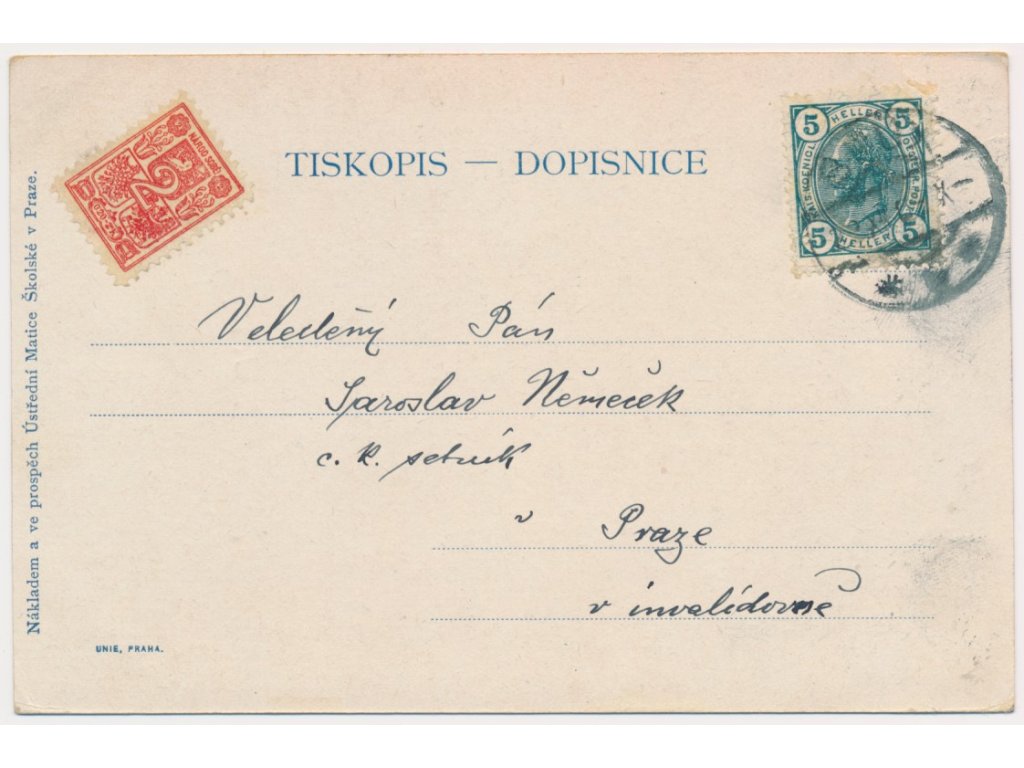 TISKOPIS — DOPISNICE
NÁROD SOBĚ
2
5 HELLER 5
5 HELLER 5
Veleděný Pán
Jaroslav Němeček
c. k. setník
v Praze
v invalidovně
Nákladem a ve prospěch Ústřední Matice Školské v Praze.
UNIE, PRAHA.